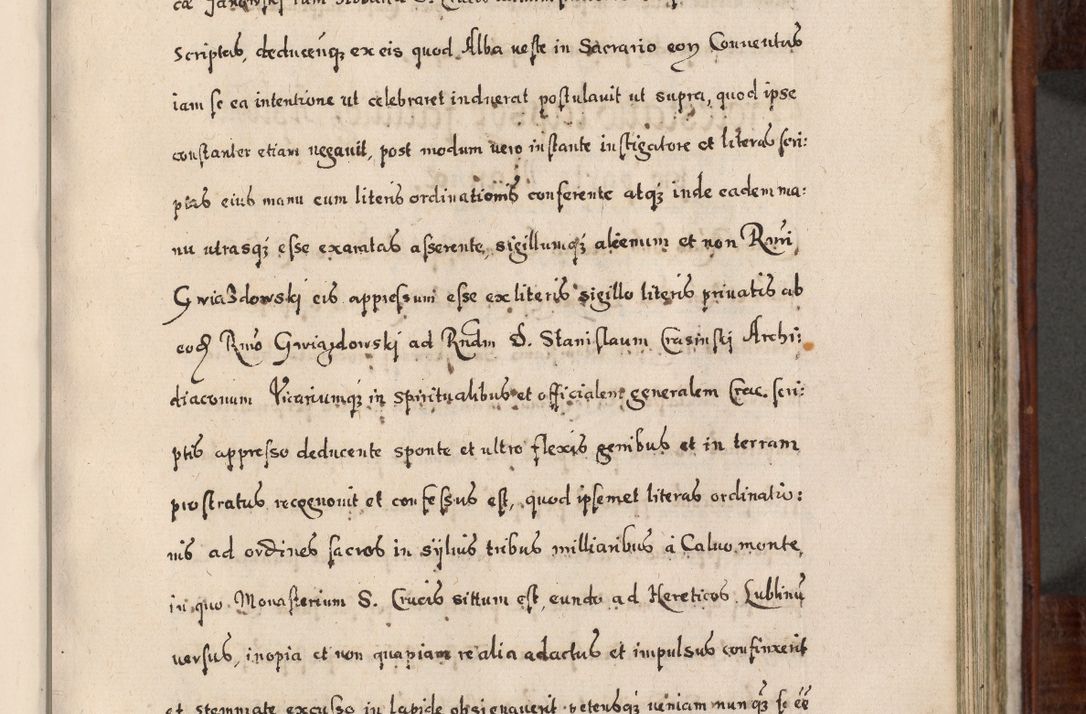 Scriptas, deducenq; ex eis quod Alba veste in Sacrario eoꝝ Conventus
iam se ea intentione ut celebraret induerat postulavit ut supra, quod ipse
constanter etiam negavit, post modum vero instante instigatore et literas scri:
ptas eius manu cum literis ordinationis conferente atq; inde eadem ma:
nu utrasq; esse exaratas asserente, sigillumq; alienum et non Rmi
Gwiazdowski eis appressum esse ex literis sigillo literis privatis ab
eod Rmo Gwiazdowski ad Rndm D. Stanislaum Crasinski Archi:
diaconum Vicariumq; in spiritualibus et officialem generalem Crac. scri:
ptis appresso deducente sponte et ultro flexis genibus et in terram
prostratus recognovit et confessus est, quod ipsemet literas ordinatio:
nis ad ordines sacros in sylvis tribus milliaribus à Calvo monte,
in quo Monasterium S. Crucis situm est, eundo ad Hereticos Lublinū
versus, inopia et non quapiam re alia adactus et impulsus confinxerit
et stemmate excusso in lapide obsignaverit petensq; veniam nunq; se